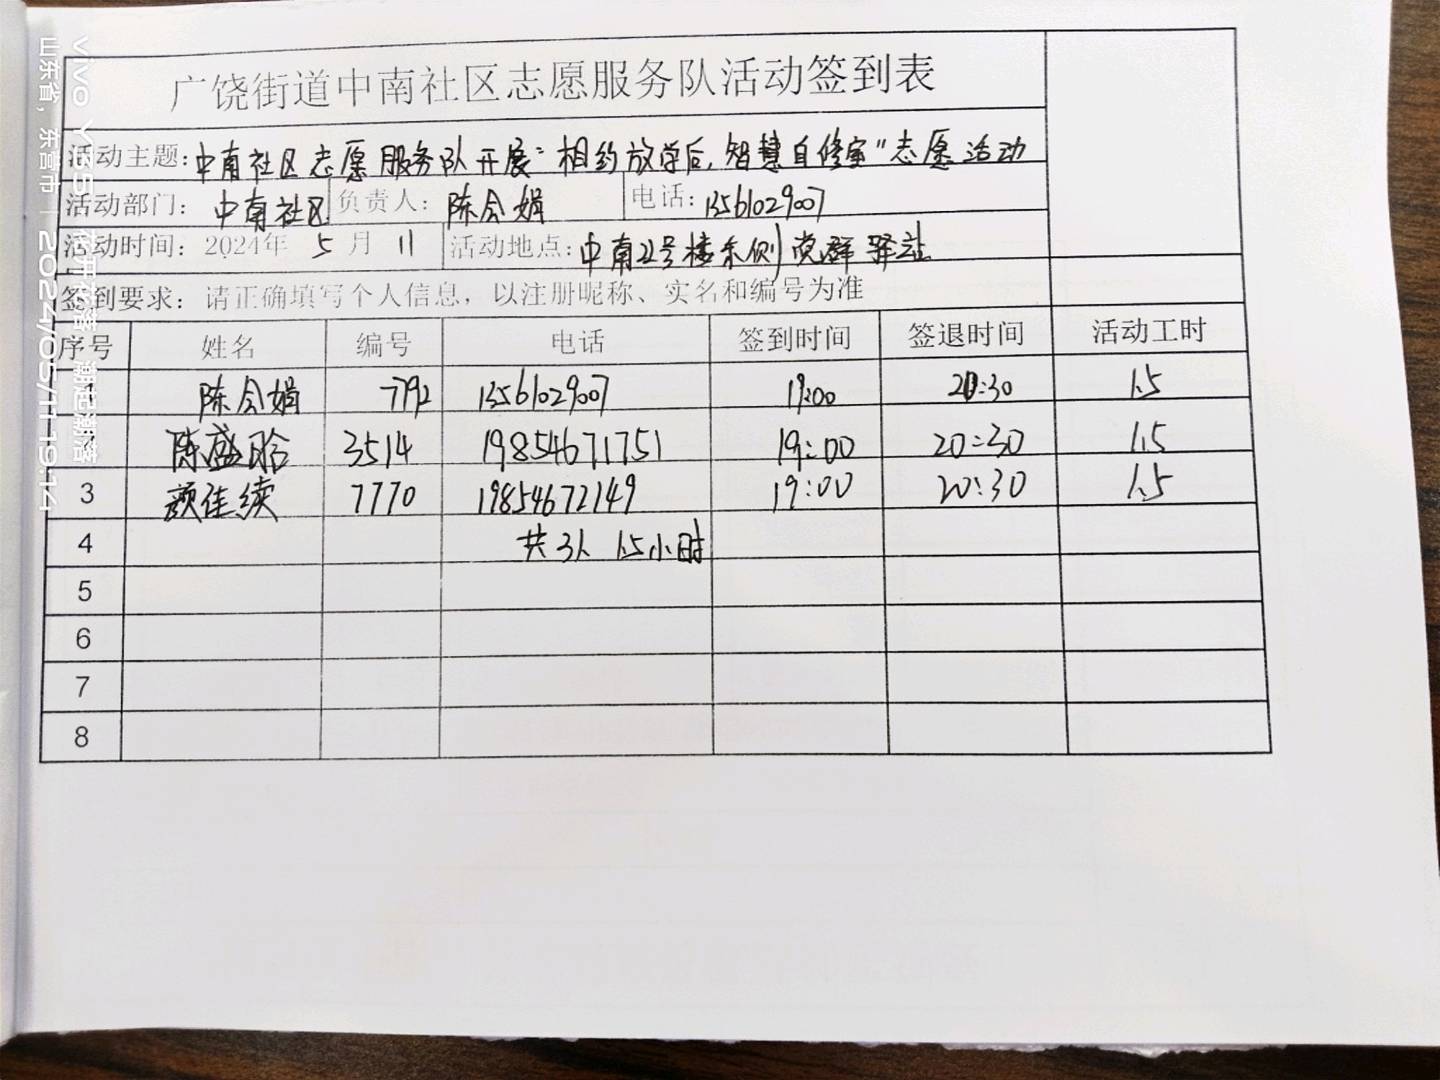 广饶街道中南社区志愿服务队活动签到表
活动主题：中南社区志愿服务队开展"相约放学后，智慧自修室"志愿活动
活动部门：中南社区 负责人：陈会娟 电话：13561029007
活动时间：2024年 5 月 11 活动地点：中南 号楼东侧党群驿站
签到要求：请正确填写个人信息，以注册昵称、实名和编号为准
序号 姓名 编号 电话 签到时间 签退时间 活动工时
陈会娟 7792 13561029007 19:00 20:30 1.5
陈盛晗 3514 19854671751 19:00 20:30 1.5
3 颜佳续 7770 19854672149 19:00 20:30 1.5
4 共3人 1.5小时
5
6
7
8
vivo Y35
山东省，东营市 | 2024/05/11 19:14